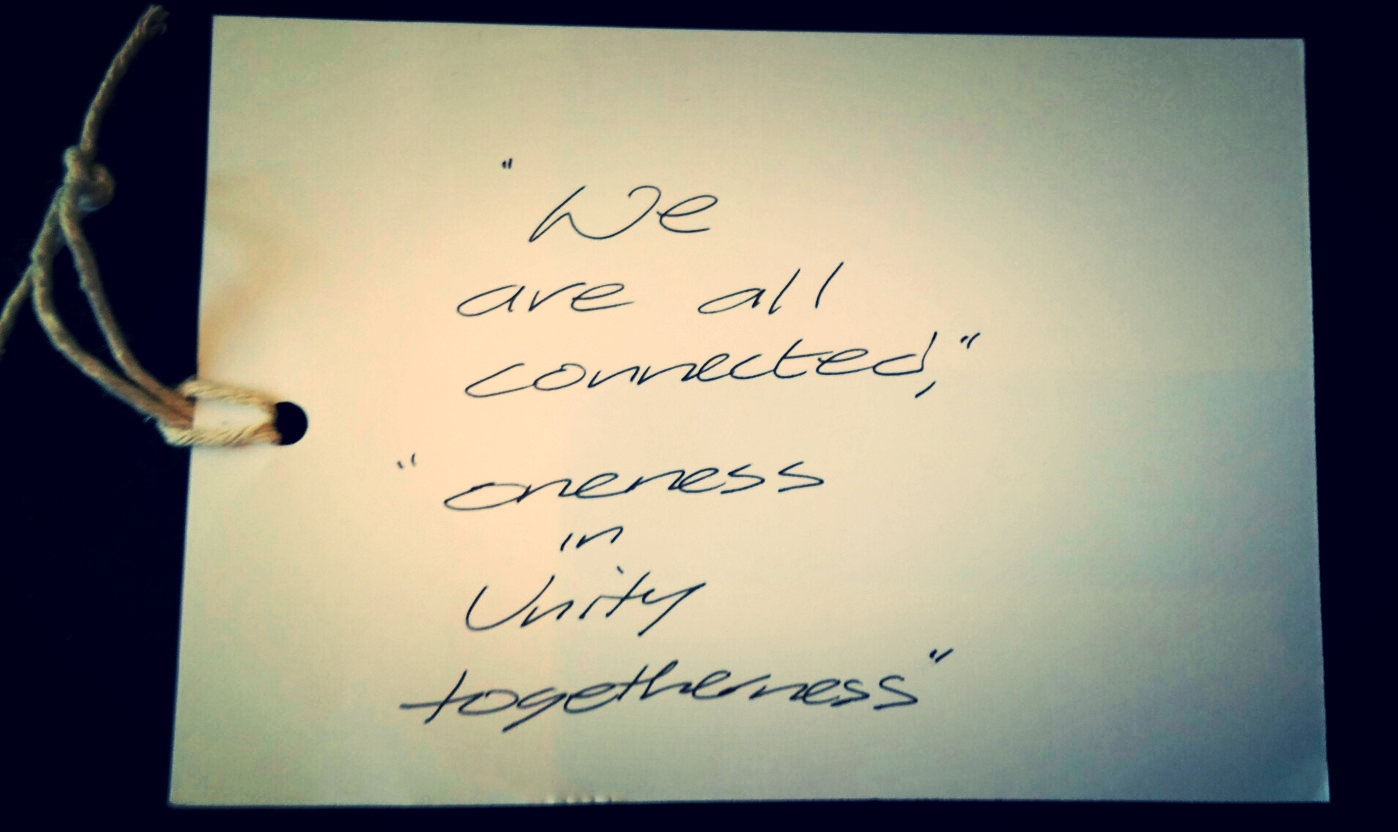 "We
are all
connected,"
"oneness
in
Unity
togetherness"